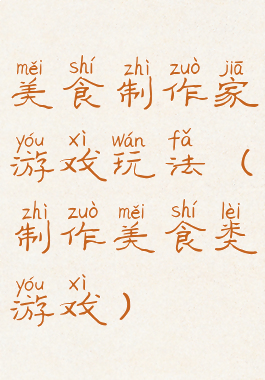 měi shí zhì zuò jiā
美食制作家
yóu xì wán fǎ
游戏玩法（
zhì zuò měi shí lèi
制作美食类
yóu xì
游戏）